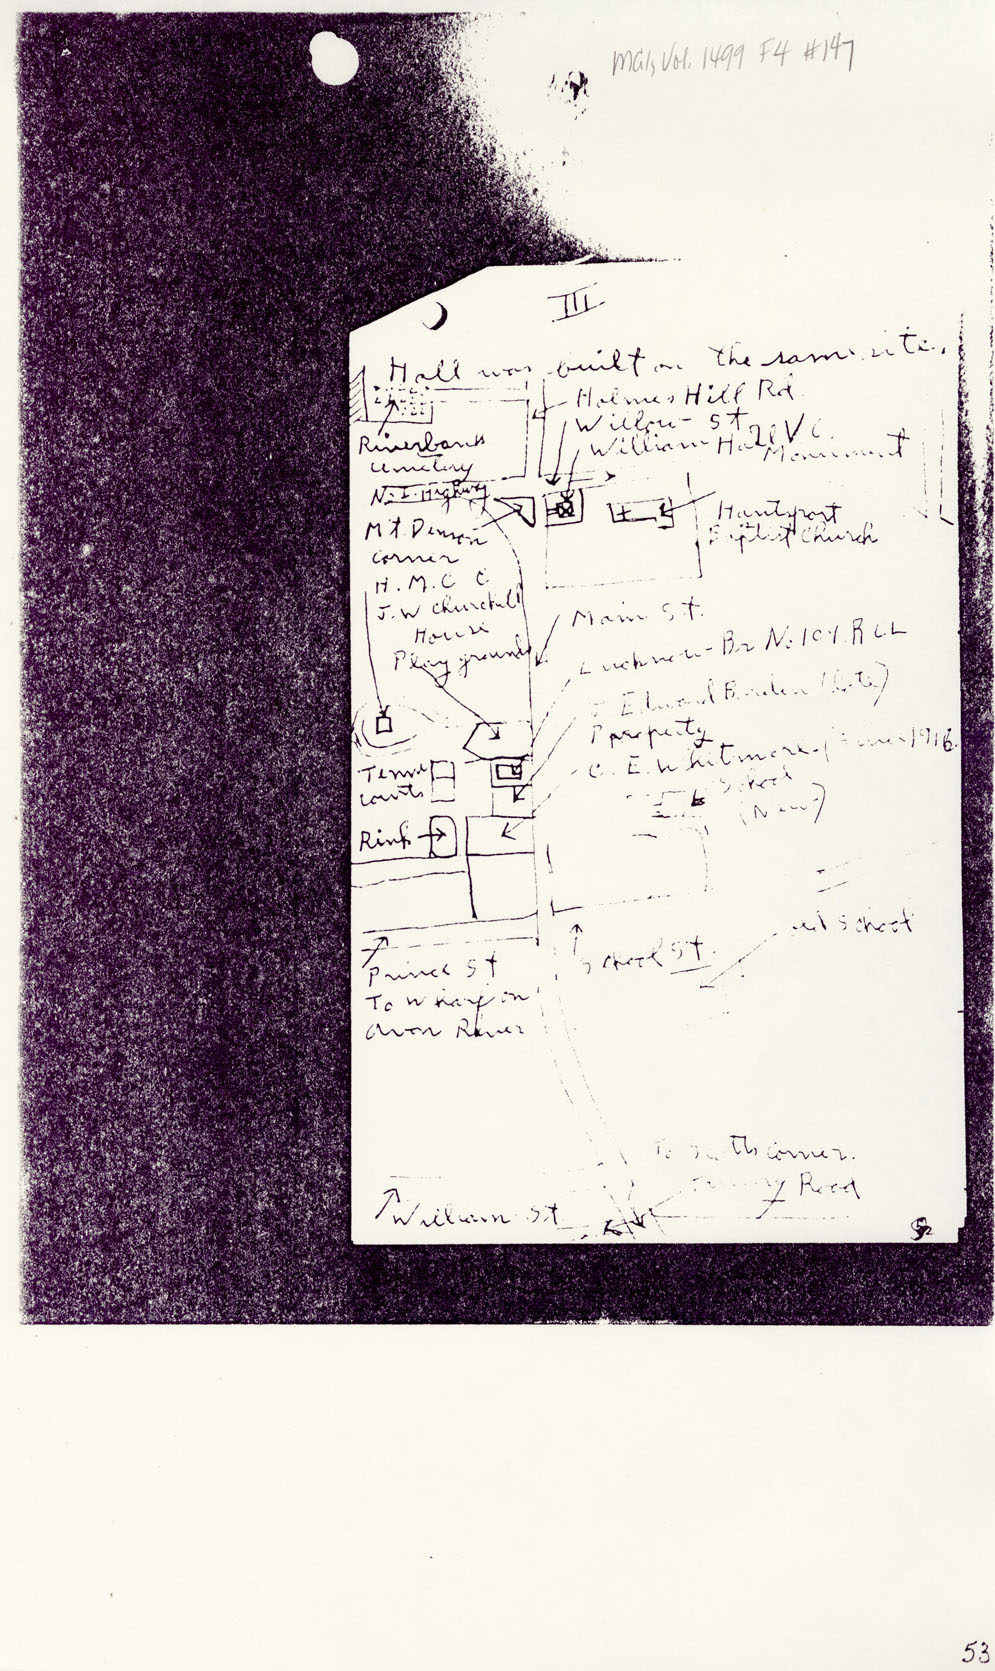 MG1, Vol. 1499 F4 #147
III
Hall was built on the same site.
Holmes Hill Rd.
Willow St
William Hall V C.
Monument
Riverbank
Cemetery
N. I. Highway
Hantsport
Baptist Church
Mt. Denson
Corner
H. M. C C
J. W Churchill
House
Play grounds
Main St.
Lucknow Br No 109. R C L
J Edward Borden (late)
Property
C. E. Whitmore (since 1916
Tennis
Courts
School
(New)
Rink
Old School
School St.
Prince St
To Wharf on
Avon River
To Smiths corner.
Road
William St
53